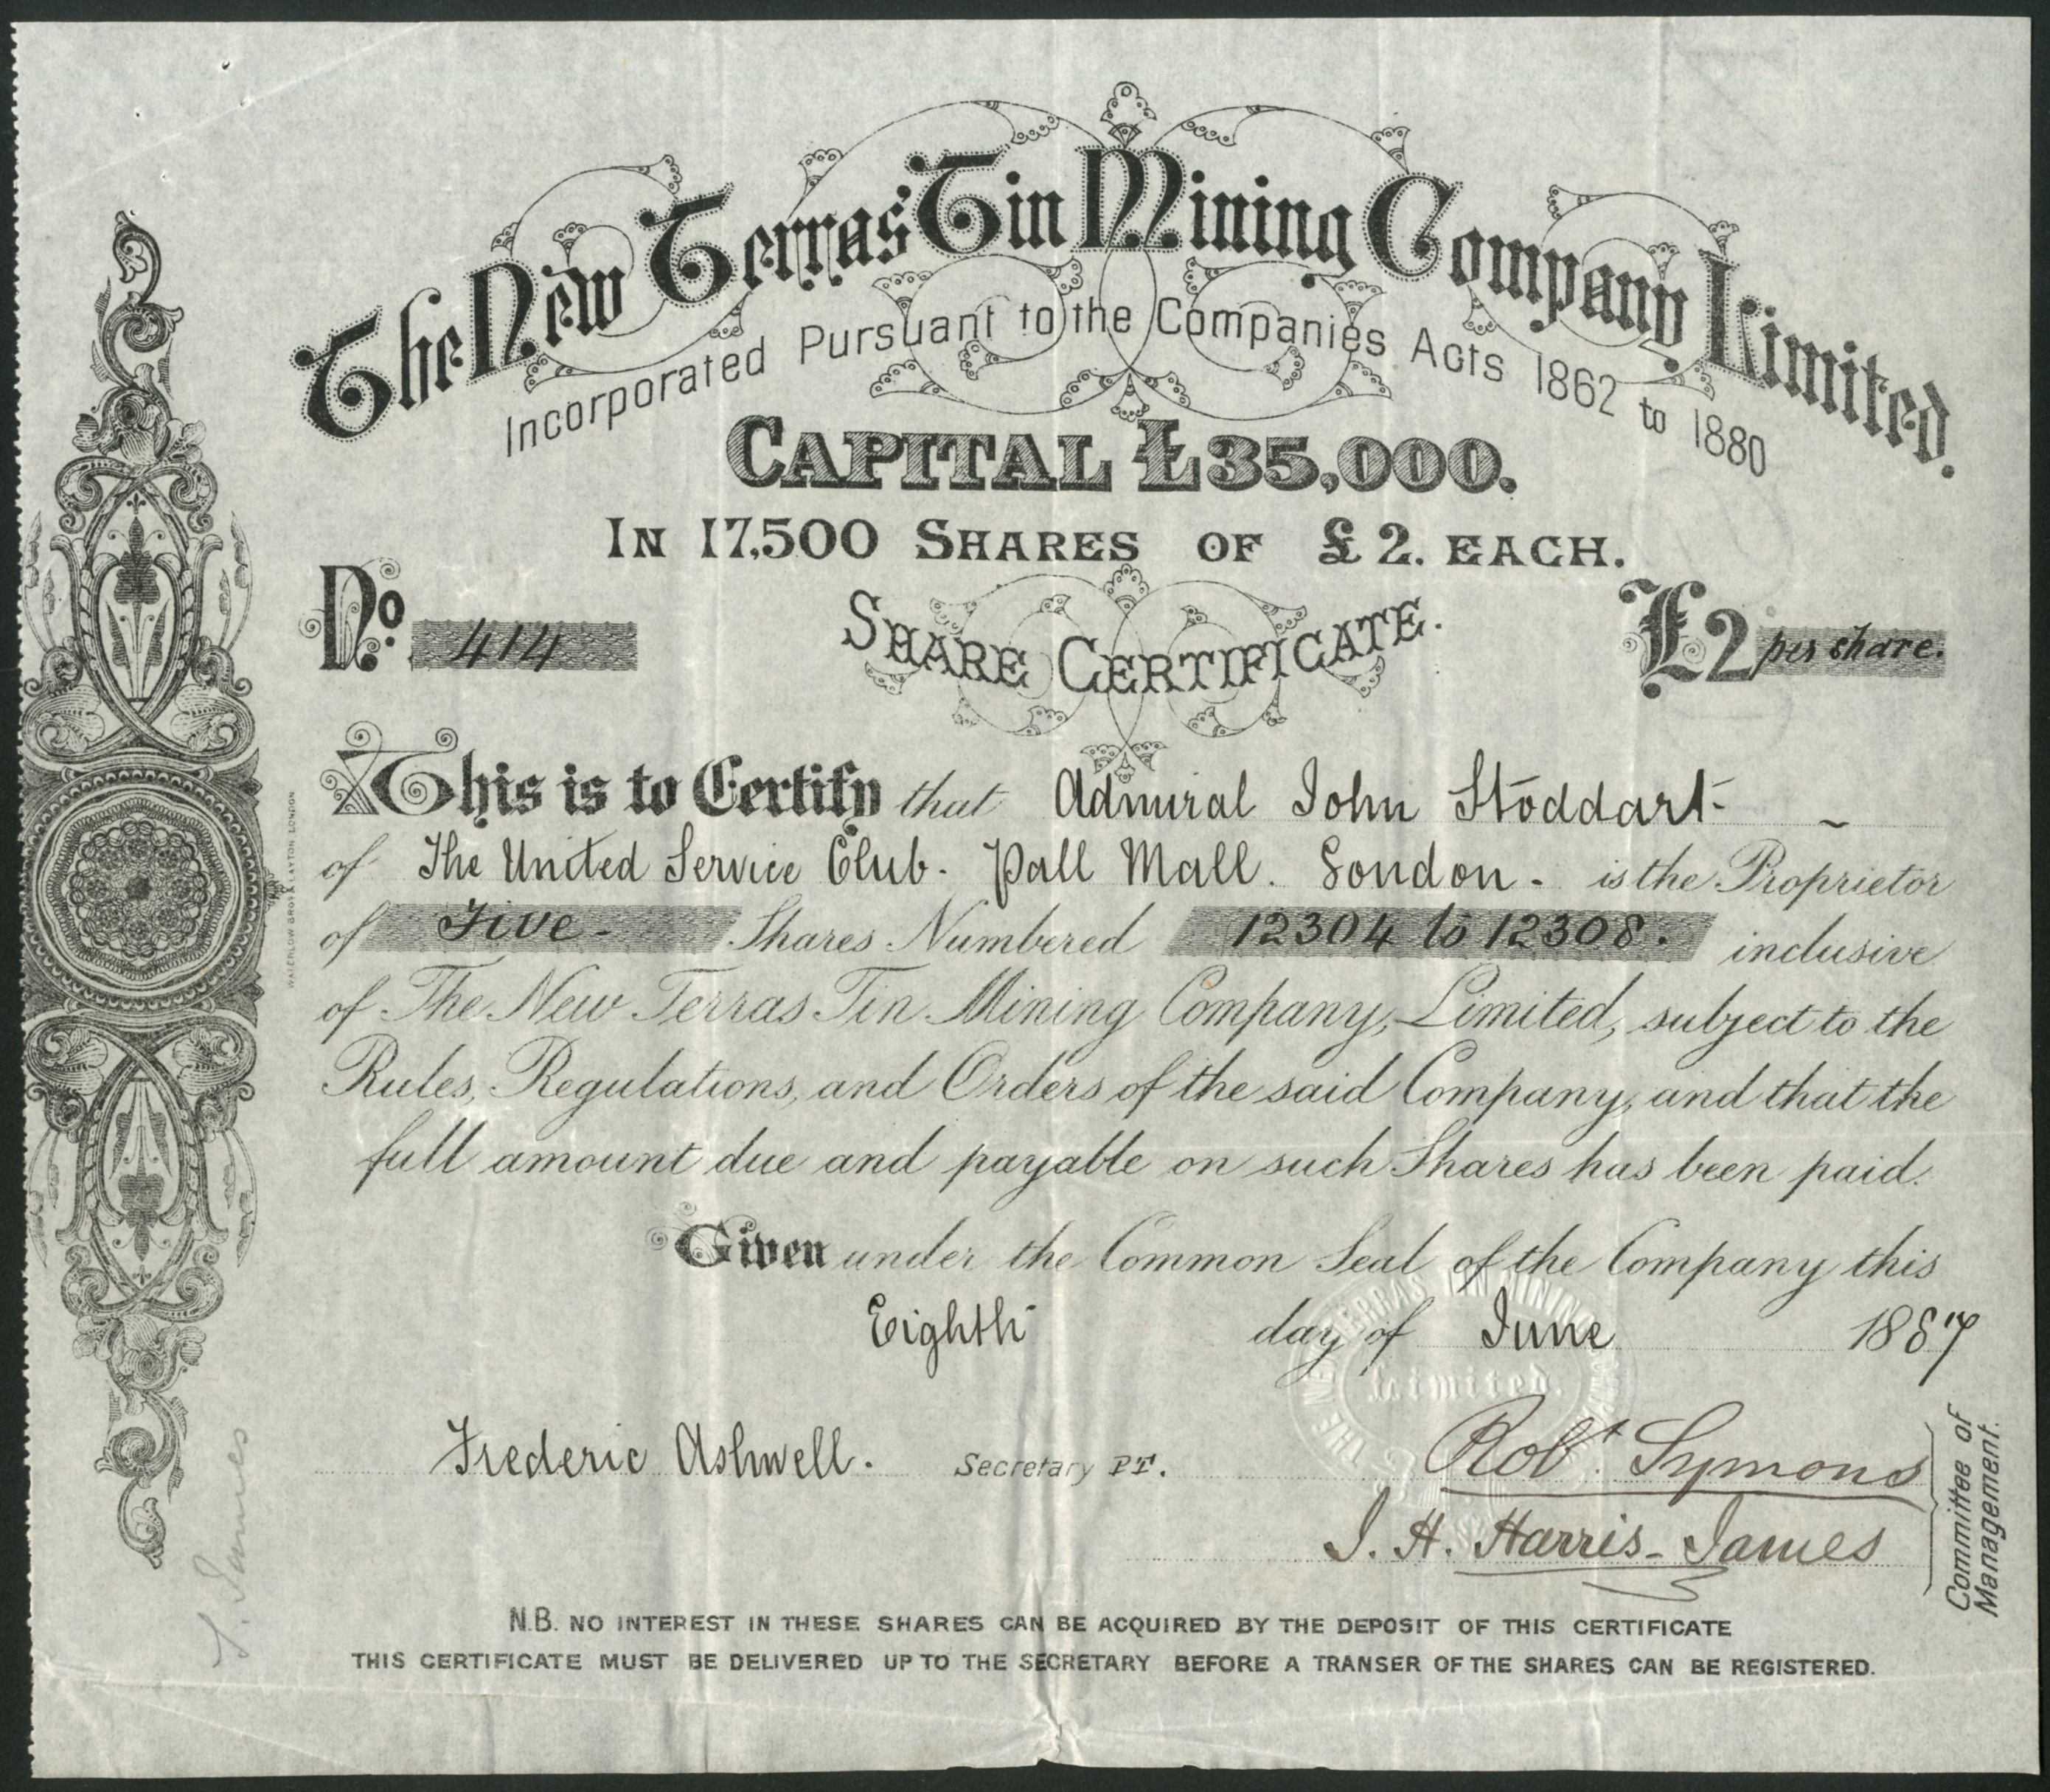 The New Terras Tin Mining Company Limited.
Incorporated Pursuant to the Companies Acts 1862 to 1880
CAPITAL £35,000.
IN 17,500 SHARES OF £2. EACH.
No. 414
SHARE CERTIFICATE.
£2 per share.
This is to Certify that Admiral John Stoddart
of The United Service Club. Pall Mall. London. is the Proprietor
of Five Shares Numbered 12304 to 12308. inclusive
of The New Terras Tin Mining Company, Limited, subject to the
Rules, Regulations, and Orders of the said Company, and that the
full amount due and payable on such Shares has been paid.
Given under the Common Seal of the Company this
Eighth day of June 1887
Frederic Ashwell. Secretary P.T.
Robt. Symons
J. H. Harris-James
Committee of
Management.
N.B. NO INTEREST IN THESE SHARES CAN BE ACQUIRED BY THE DEPOSIT OF THIS CERTIFICATE
THIS CERTIFICATE MUST BE DELIVERED UP TO THE SECRETARY BEFORE A TRANSER OF THE SHARES CAN BE REGISTERED.
WATERLOW BROS & LAYTON, LONDON
James
THE NEW TERRAS TIN MINING
Limited.